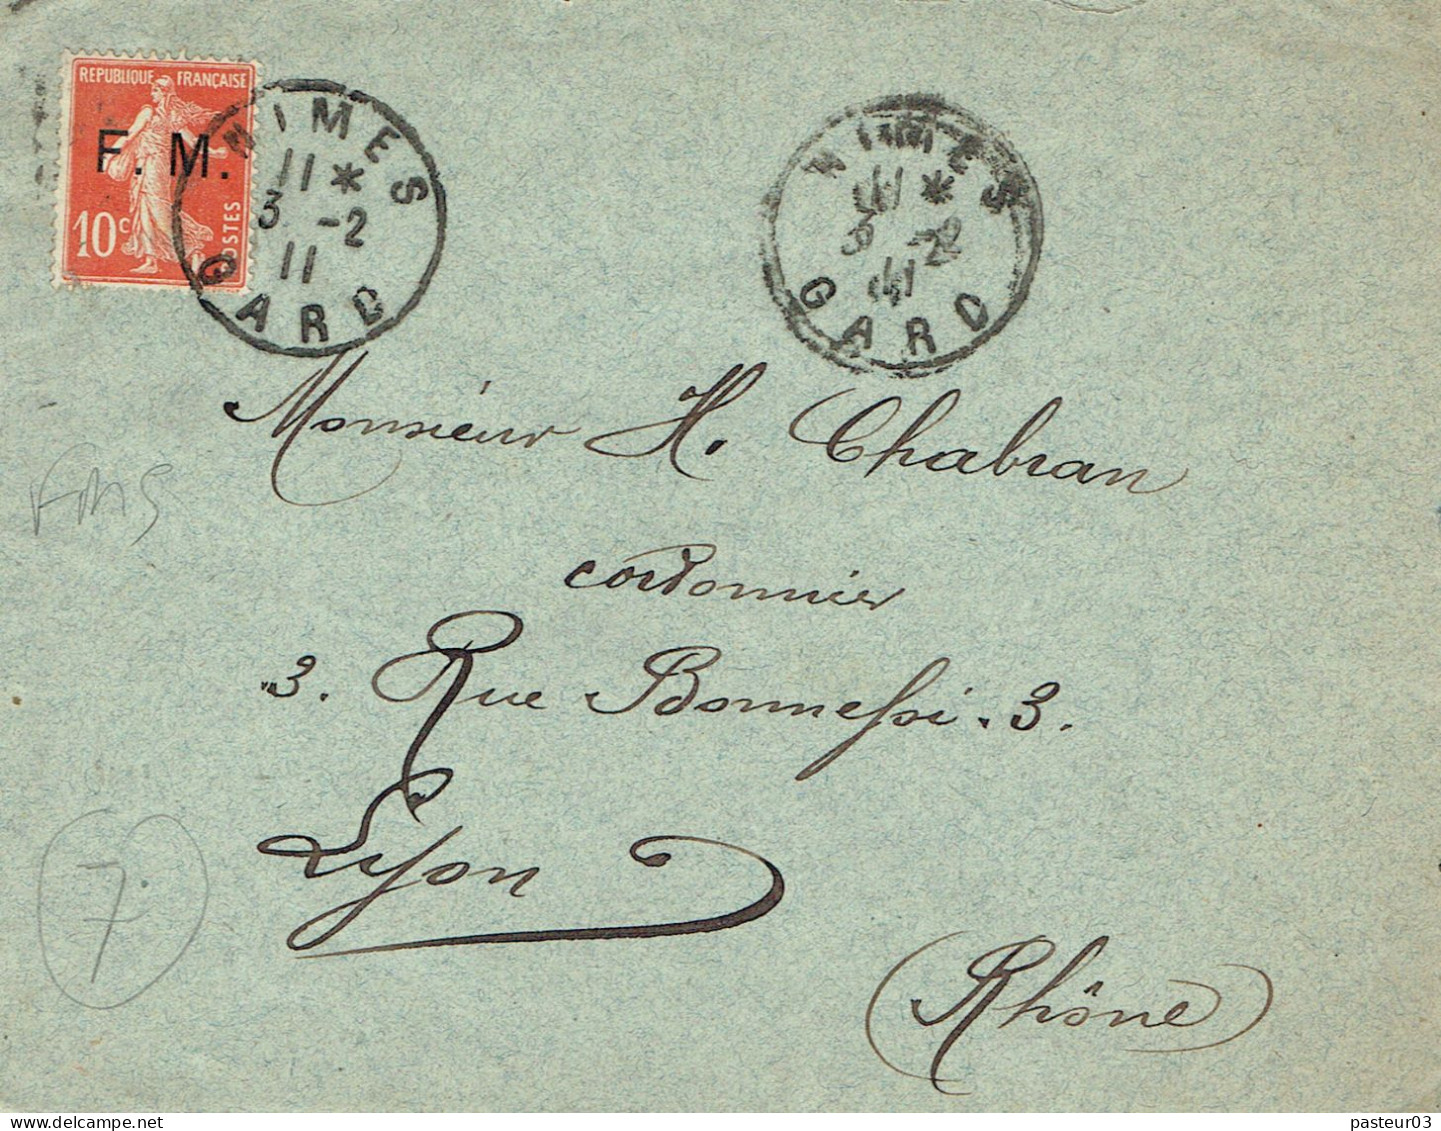 REPUBLIQUE FRANÇAISE
F. M.
10c
POSTES
NIMES
11 *
3 -2
11
GARD
NIMES
*
GARD
Monsieur H. Chabran
FM5
cordonnier
3. Rue Bonnefoi. 3.
Lyon
7
(Rhône)
pasteur03